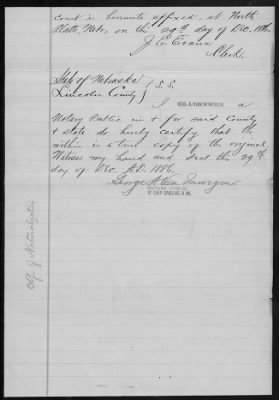 court is hereunto affixed, at North
Platte, Neb, on the 29th day of Dec, 1886.
J. E. Evans
Clerk.
State of Nebraska } S. S.
Lincoln County }
I a
Notary Public in & for said County
& state do hereby certify that the
within is a true copy of the original
Witness my hand and seal the 29th
day of Dec. A.D. 1886.
George A Van
NOTARY PUBLIC
Ctf. of Naturalization